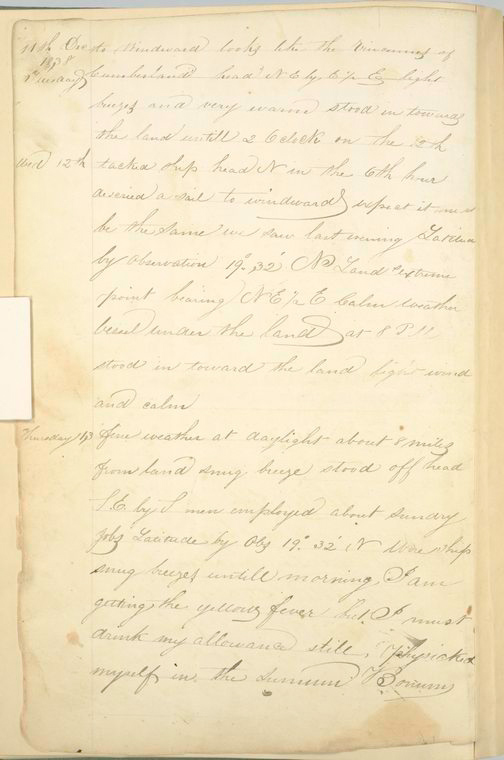 11th Dec to Windward looks like the Vincennes of
1838
Tuesday Cumberland head N E by E ½ E light
breezes and very warm stood in towards
the land untill 2 Oclock on the 12th
Wed 12th tacked ship head N in the 6th hour
descried a sail to windward expect it must
be the same we saw last evening Latitude
by Observation 19° 32' N Land extreme
point bearing N E ½ E Calm weather
vessel under the land at 8 P M
stood in toward the land light wind
and calm
Thursday 13 fine weather at daylight about 8 miles
from land snug breeze stood off head
S E by S men employed about sundry
jobs Latitude by Obs 19° 32' N Wore ship
snug breezes untill morning I am
getting the yellow fever but I must
drink my allowance still, Physicked
myself in the Summum Bonum